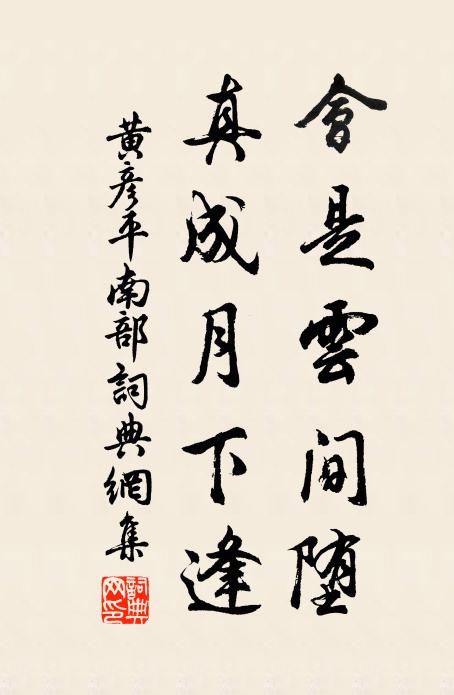 會是雲間墮
真成月下逢
黃彥平南部詞典網集
詞典網印